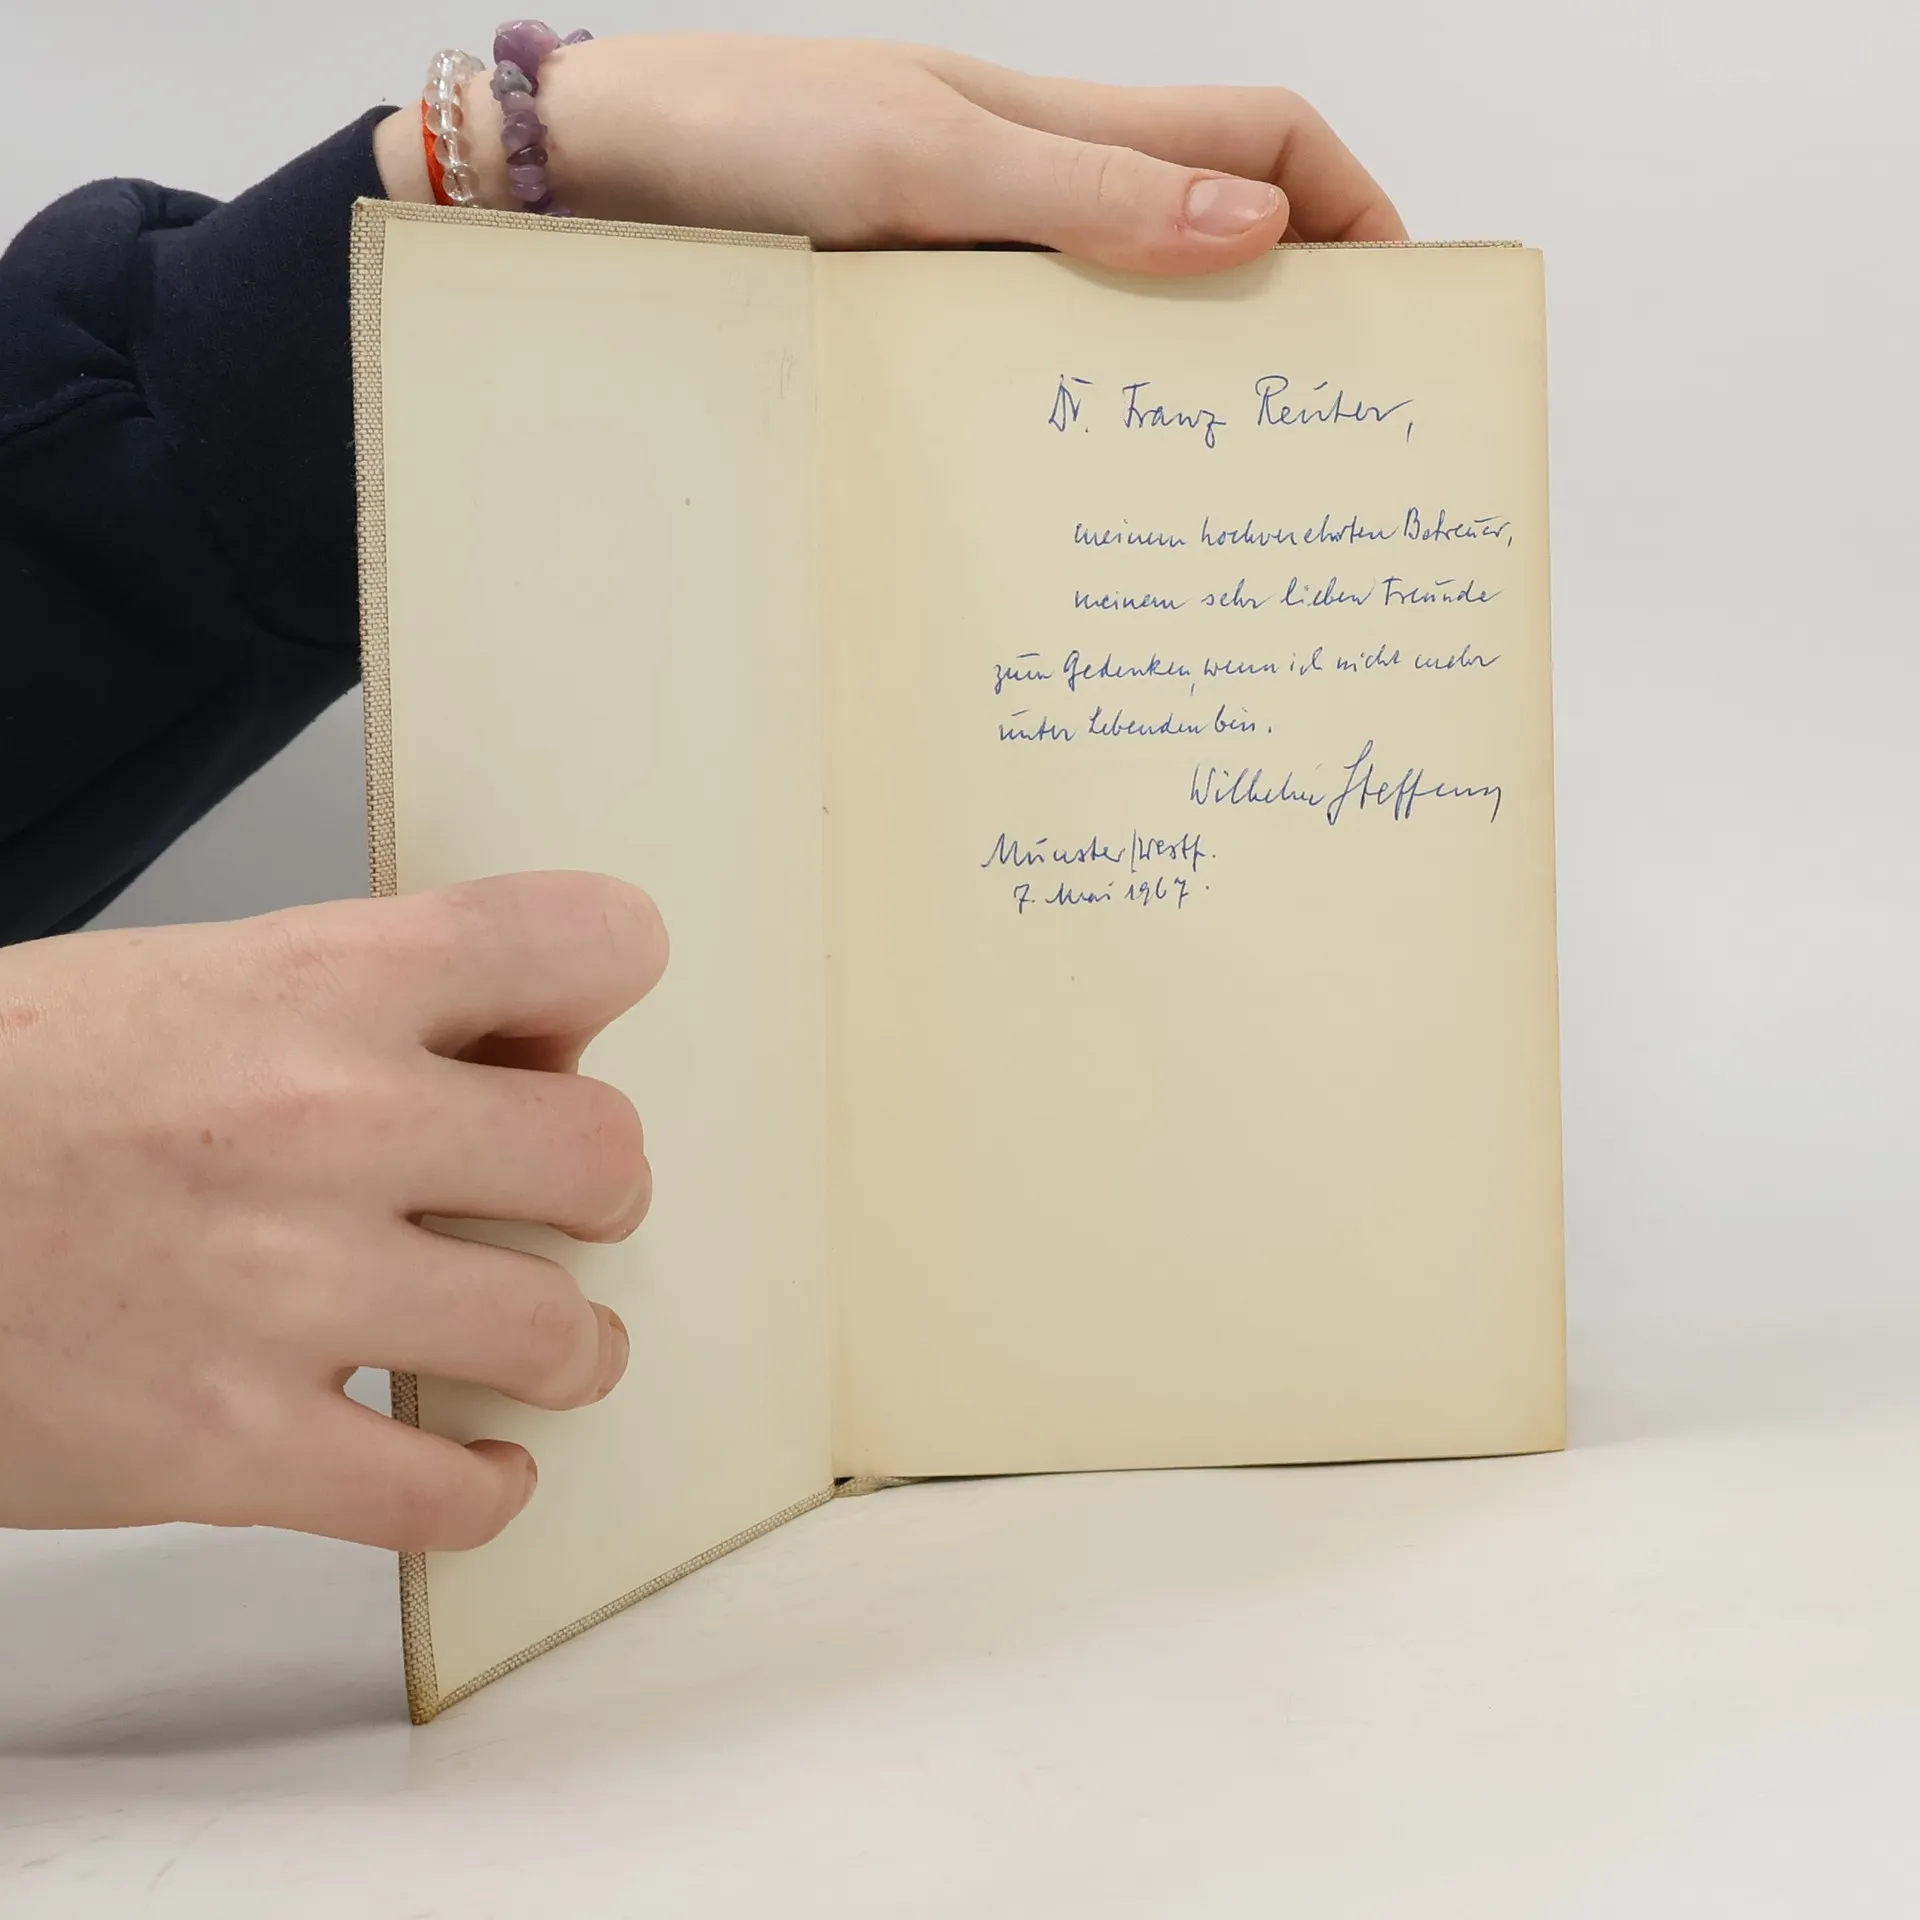 Dr. Franz Reuter,
meinem hochverehrten Betreuer,
meinem sehr lieben Freunde
zum Gedenken, wenn ich nicht mehr
unter Lebenden bin.
Wilhelm Steffens
Münster/Westf.
7. Mai 1967.